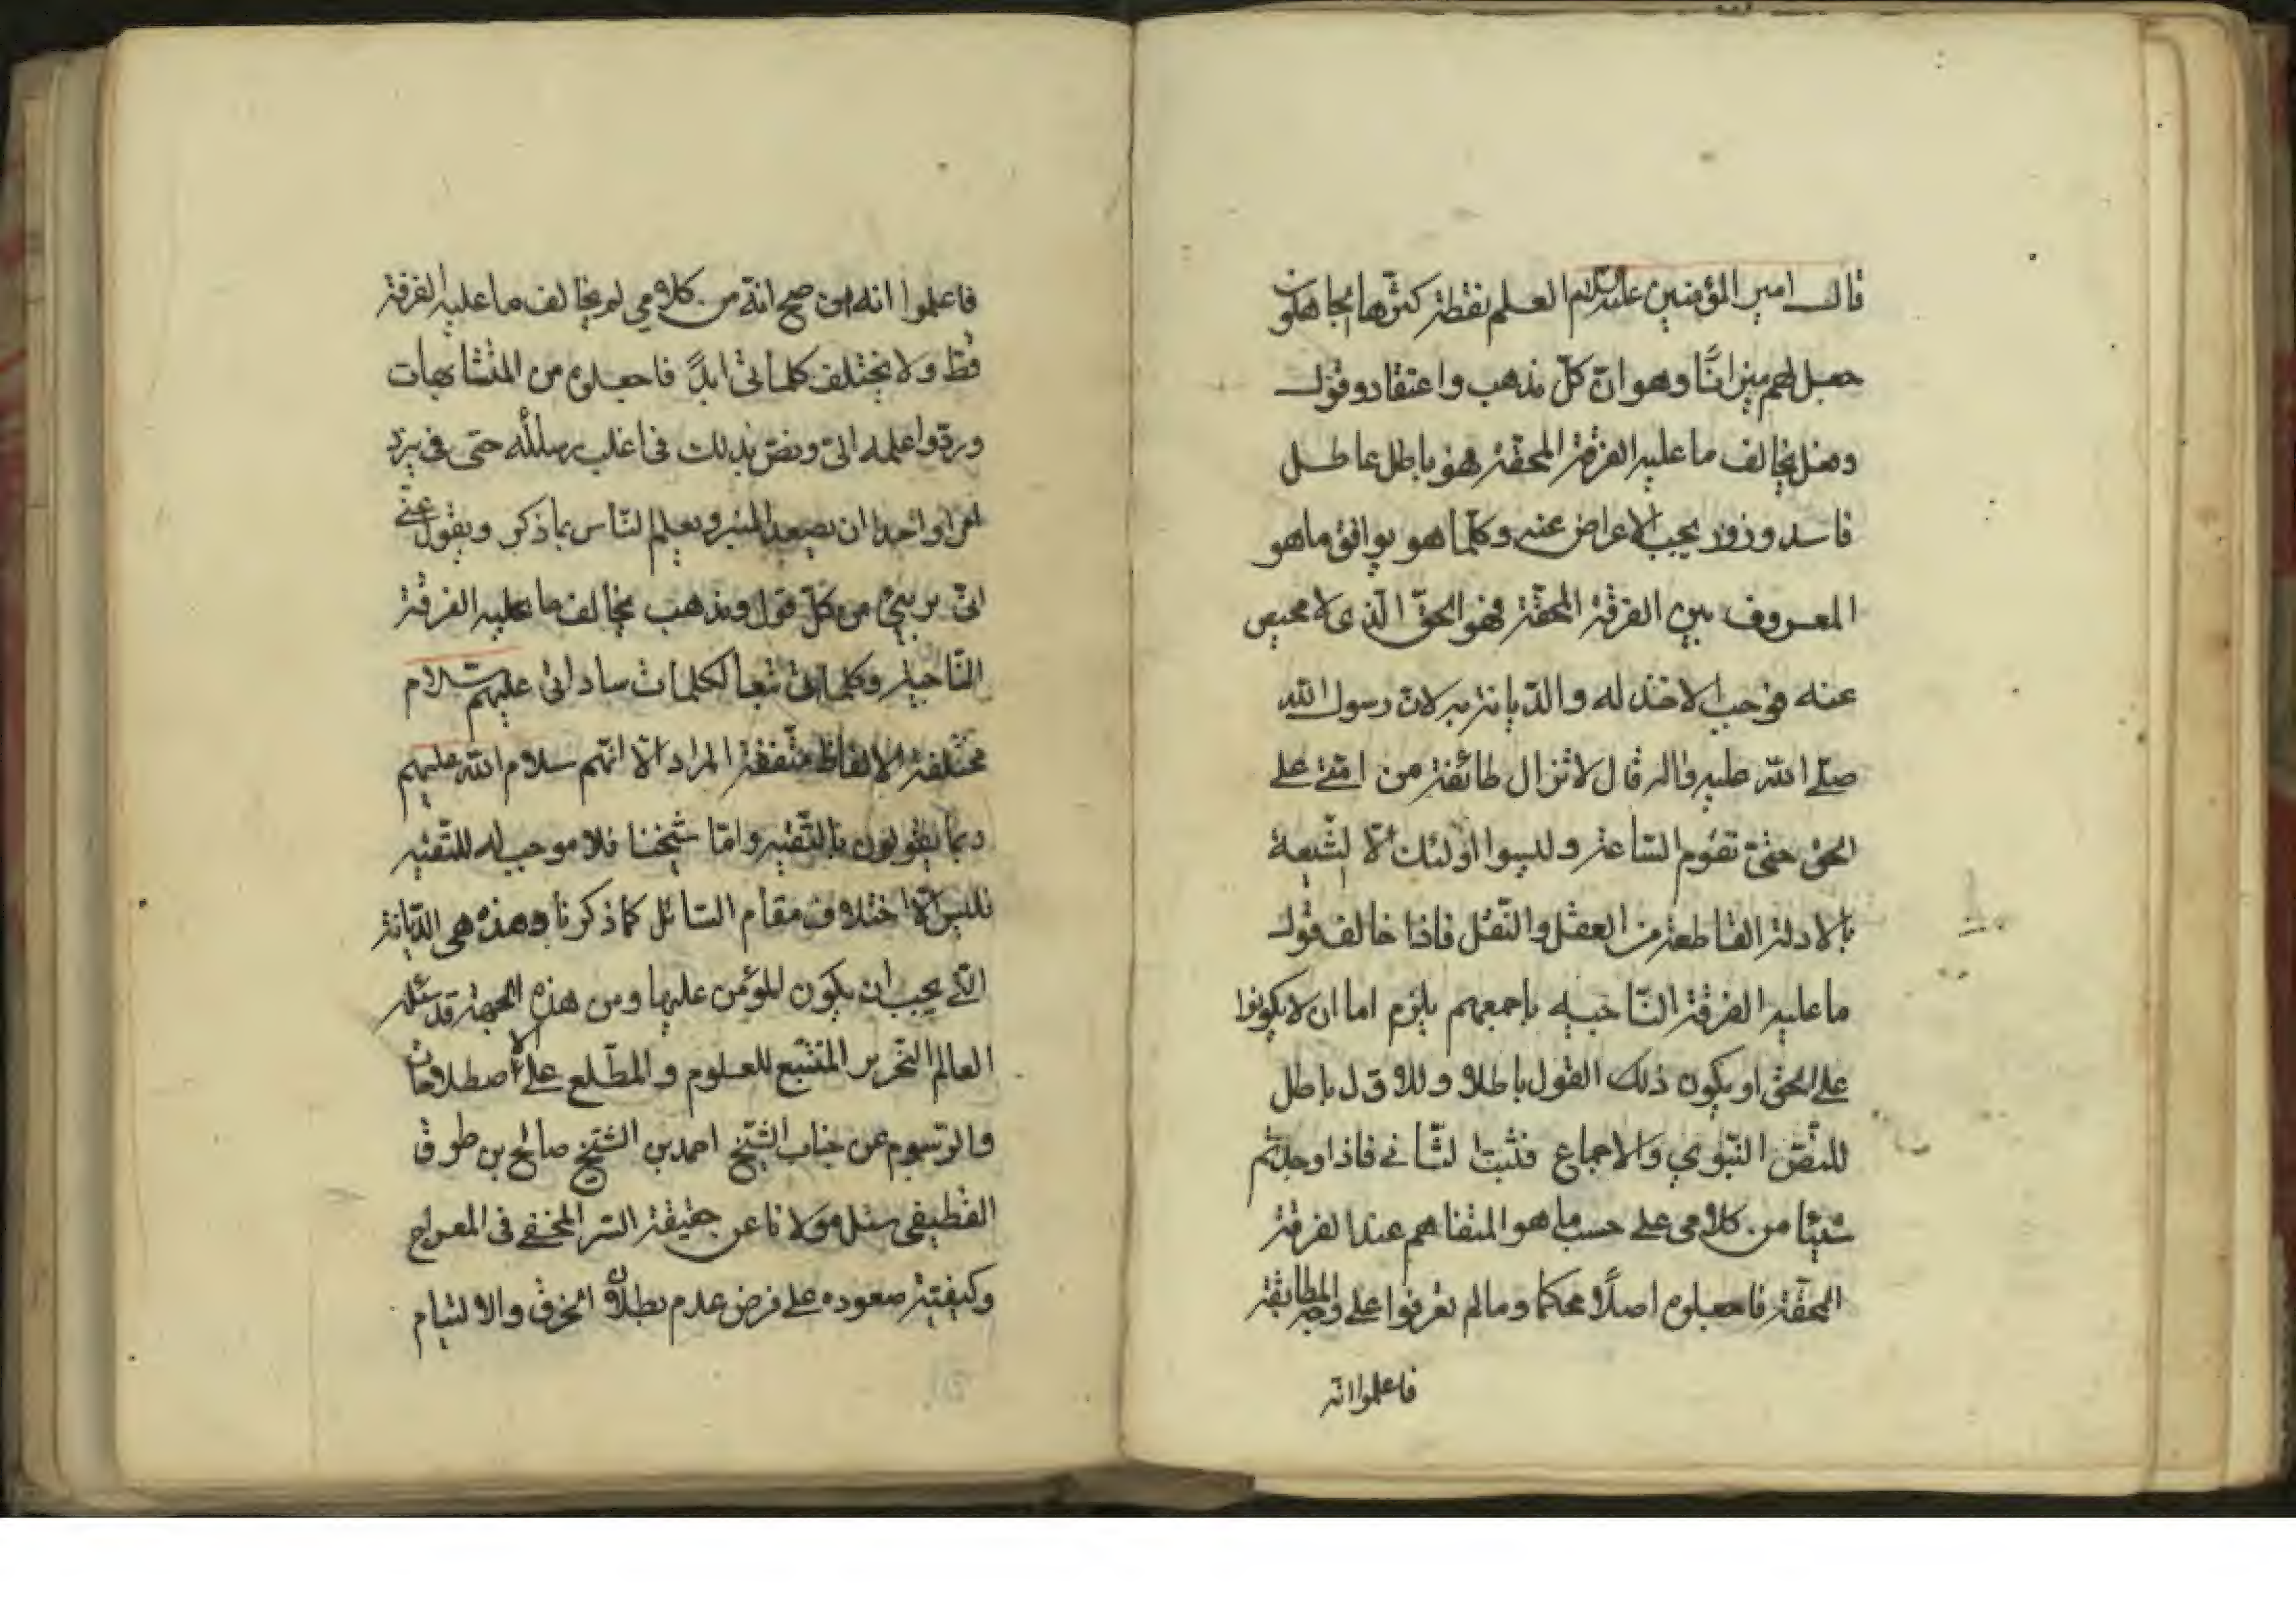 قال امير المؤمنين عليه السلام العلم نقطة كثرها الجاهلون
جعل لهم ميزانًا وهو ان كلّ مذهب واعتقاد وقول
ومثل يخالف ما عليه الفرقة المحقة فهو باطل عاطل
فاسد وزور يجب الاعراض عنه وكلما هو يوافق ما هو
المعروف بين الفرقة المحقّة فهو الحقّ الّذي لا محيص
عنه فوجب الاخذ له والدّيانة به لانّ رسول الله
صلّى الله عليه واله قال لا تزال طائفة من امّتي على
الحق حتّى تقوم السّاعة وليسوا اولئك الّا الشّيعة
بالادلة القاطعة من العقل والنّقل فاذا خالف قول
ما عليه الفرقة النّاجيه باجمعهم يلزم اما ان لا يكونوا
على الحق او يكون ذلك القول باطلا وللاوّل باطل
للنّصّ النّبوي والاجماع فثبت الثّاني فاذا وجدتم
شيئا من كلامي على حسب ما هو المتفاهم عند الفرقة
المحقّة فاجعلوه اصلًا محكما وما لم تعرفوا على وجه المطابقة
فاعلموا انّه
فاعلموا انه ان صح انّه من كلامي لم يخالف ما عليه الفرقة
قطّ ولا يختلف كلماتي ابدًا فاجعلوه من المتشابهات
وردّوا علمه اليّ ونصّ بذلك في اغلب رسائله حتى في يزد
امر واحدا ان يصعد المنبر ويعلم النّاس بما ذكر ويقول عنّي
انّي بريئ من كلّ قول ومذهب يخالف ما عليه الفرقة
النّاجية وكلماتي تبعا لكلمات ساداتي عليهم السّلام
مختلفة الالفاظ متّفقة المراد الّا انّهم سلام الله عليهم
ربما يقولون بالتّقيه وامّا شيخنا فلا موجب له للتّقيه
فليس الّا اختلاف مقام السّائل كما ذكرنا وهذه هي الدّيانة
الّتي يجب ان يكون المؤمن عليها ومن هذه الجهة قد سئله
العالم النّحرير المتتبّع للعلوم والمطّلع على الاصطلاحات
والرّسوم عن جناب الشّيخ احمد بن الشّيخ صالح بن طوق
القطيفي سئل مولانا عن حقيقة السّر المخفي في المعراج
وكيفيّة صعوده على فرض عدم بطلان الخرق والالتيام